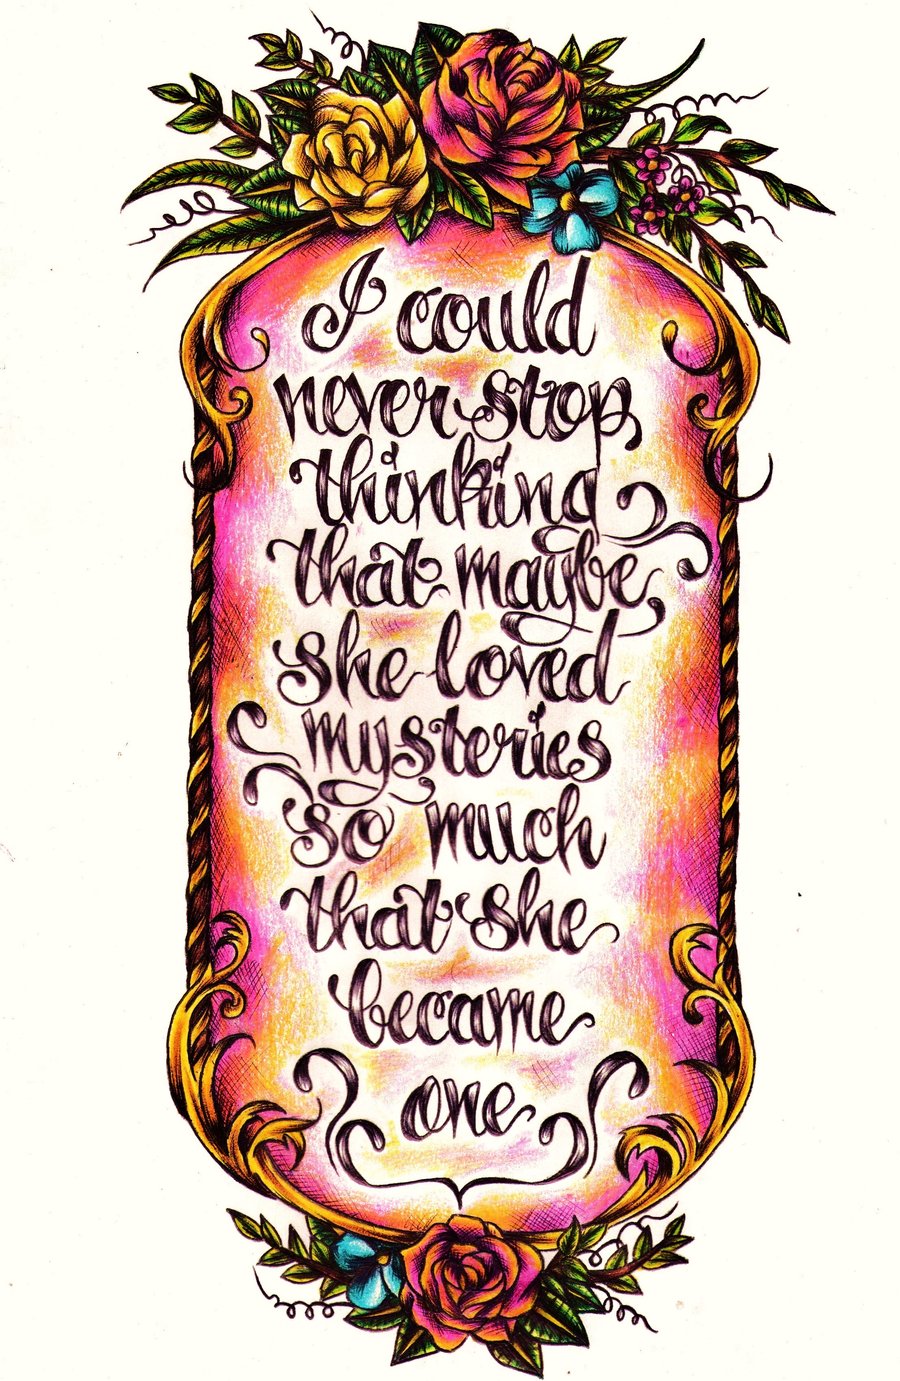 I could
never stop
thinking
that maybe
she loved
mysteries
so much
that she
became
one